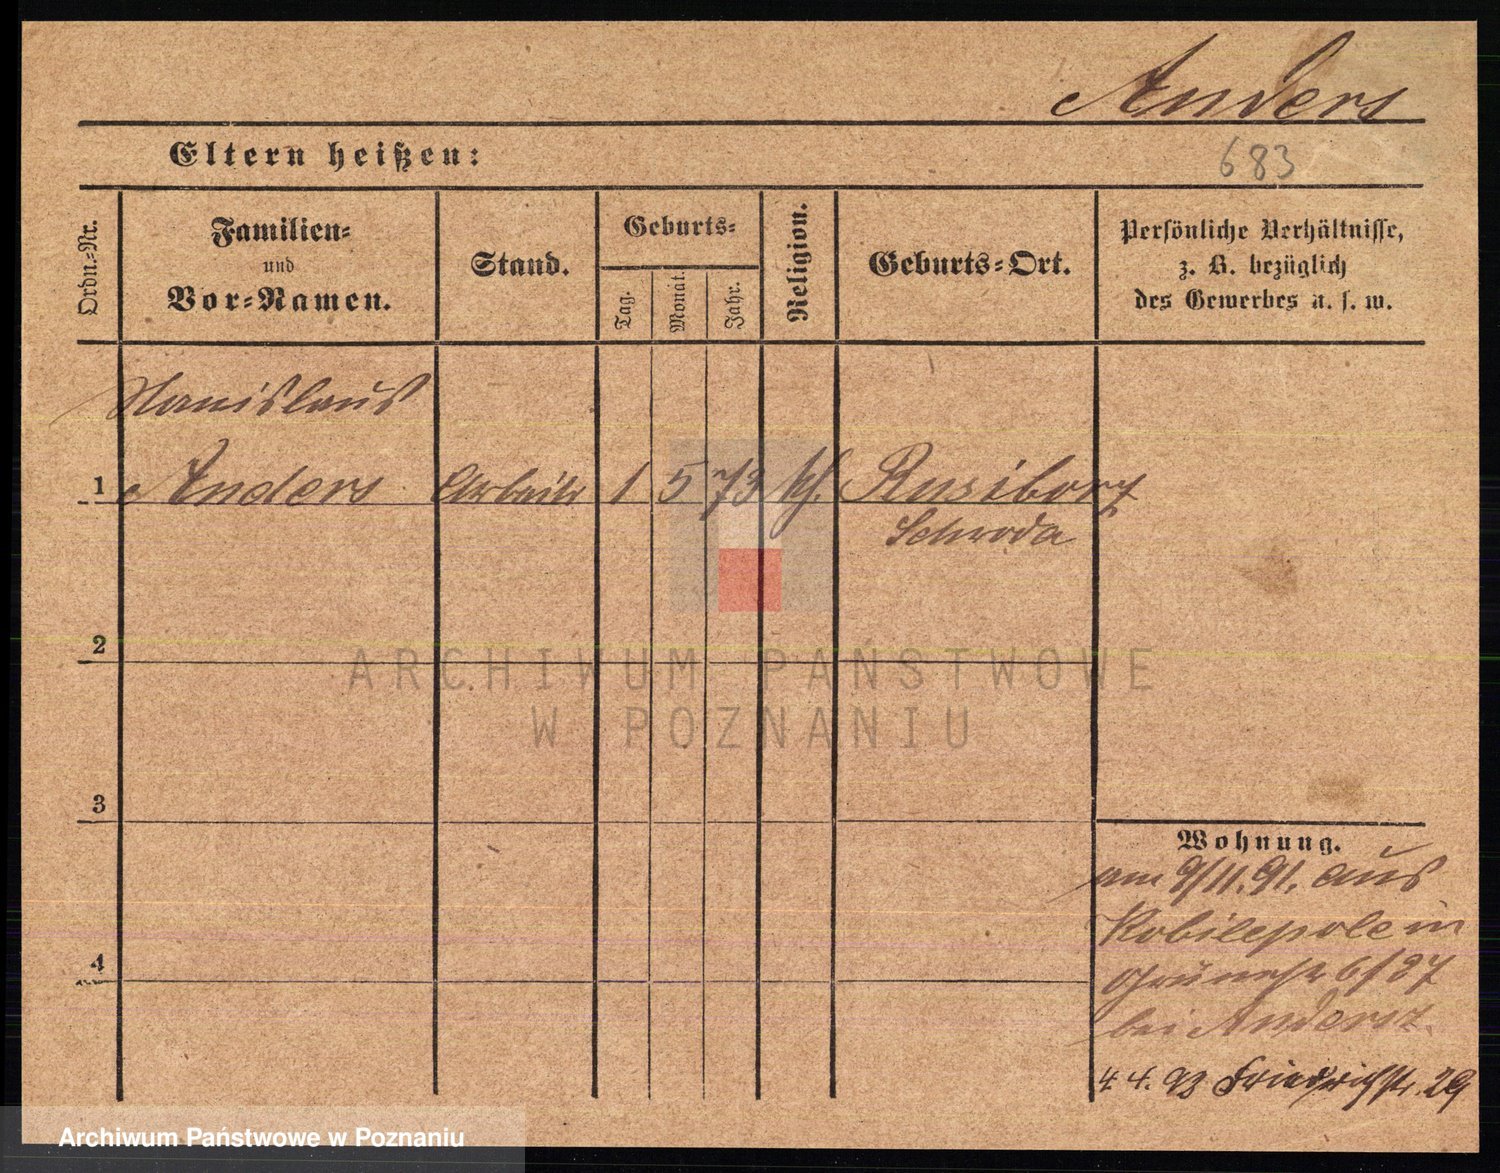 Anders
Eltern heißen:
683
Ordn.-Nr.
Familien-
und
Vor-Namen.
Stand.
Geburts-
Tag.
Monat.
Jahr.
Religion.
Geburts-Ort.
Persönliche Verhältnisse,
z. B. bezüglich
des Gewerbes u. s. w.
Stanislaus
1 Anders Arbeiter 1 5 73 kt. Rusiborz
Schroda
2
ARCHIWUM PAŃSTWOWE
W POZNANIU
3
Wohnung.
am 9/11.91. aus
Kobilepole in
4
6/37
bei Andersz
4.4.93 Friedrichstr. 29
Archiwum Państwowe w Poznaniu